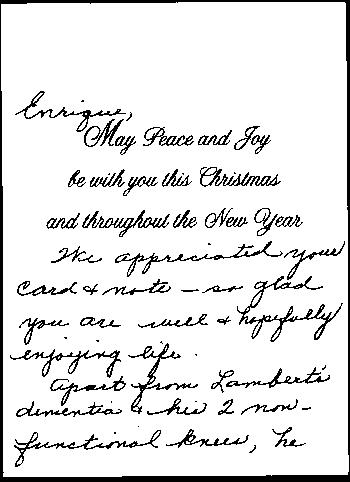 Enrique,
May Peace and Joy
be with you this Christmas
and throughout the New Year
We appreciated your
card & note - so glad
you are well & hopefully
enjoying life.
Apart from Lambert's
dementia & his 2 non-
functional knees, he